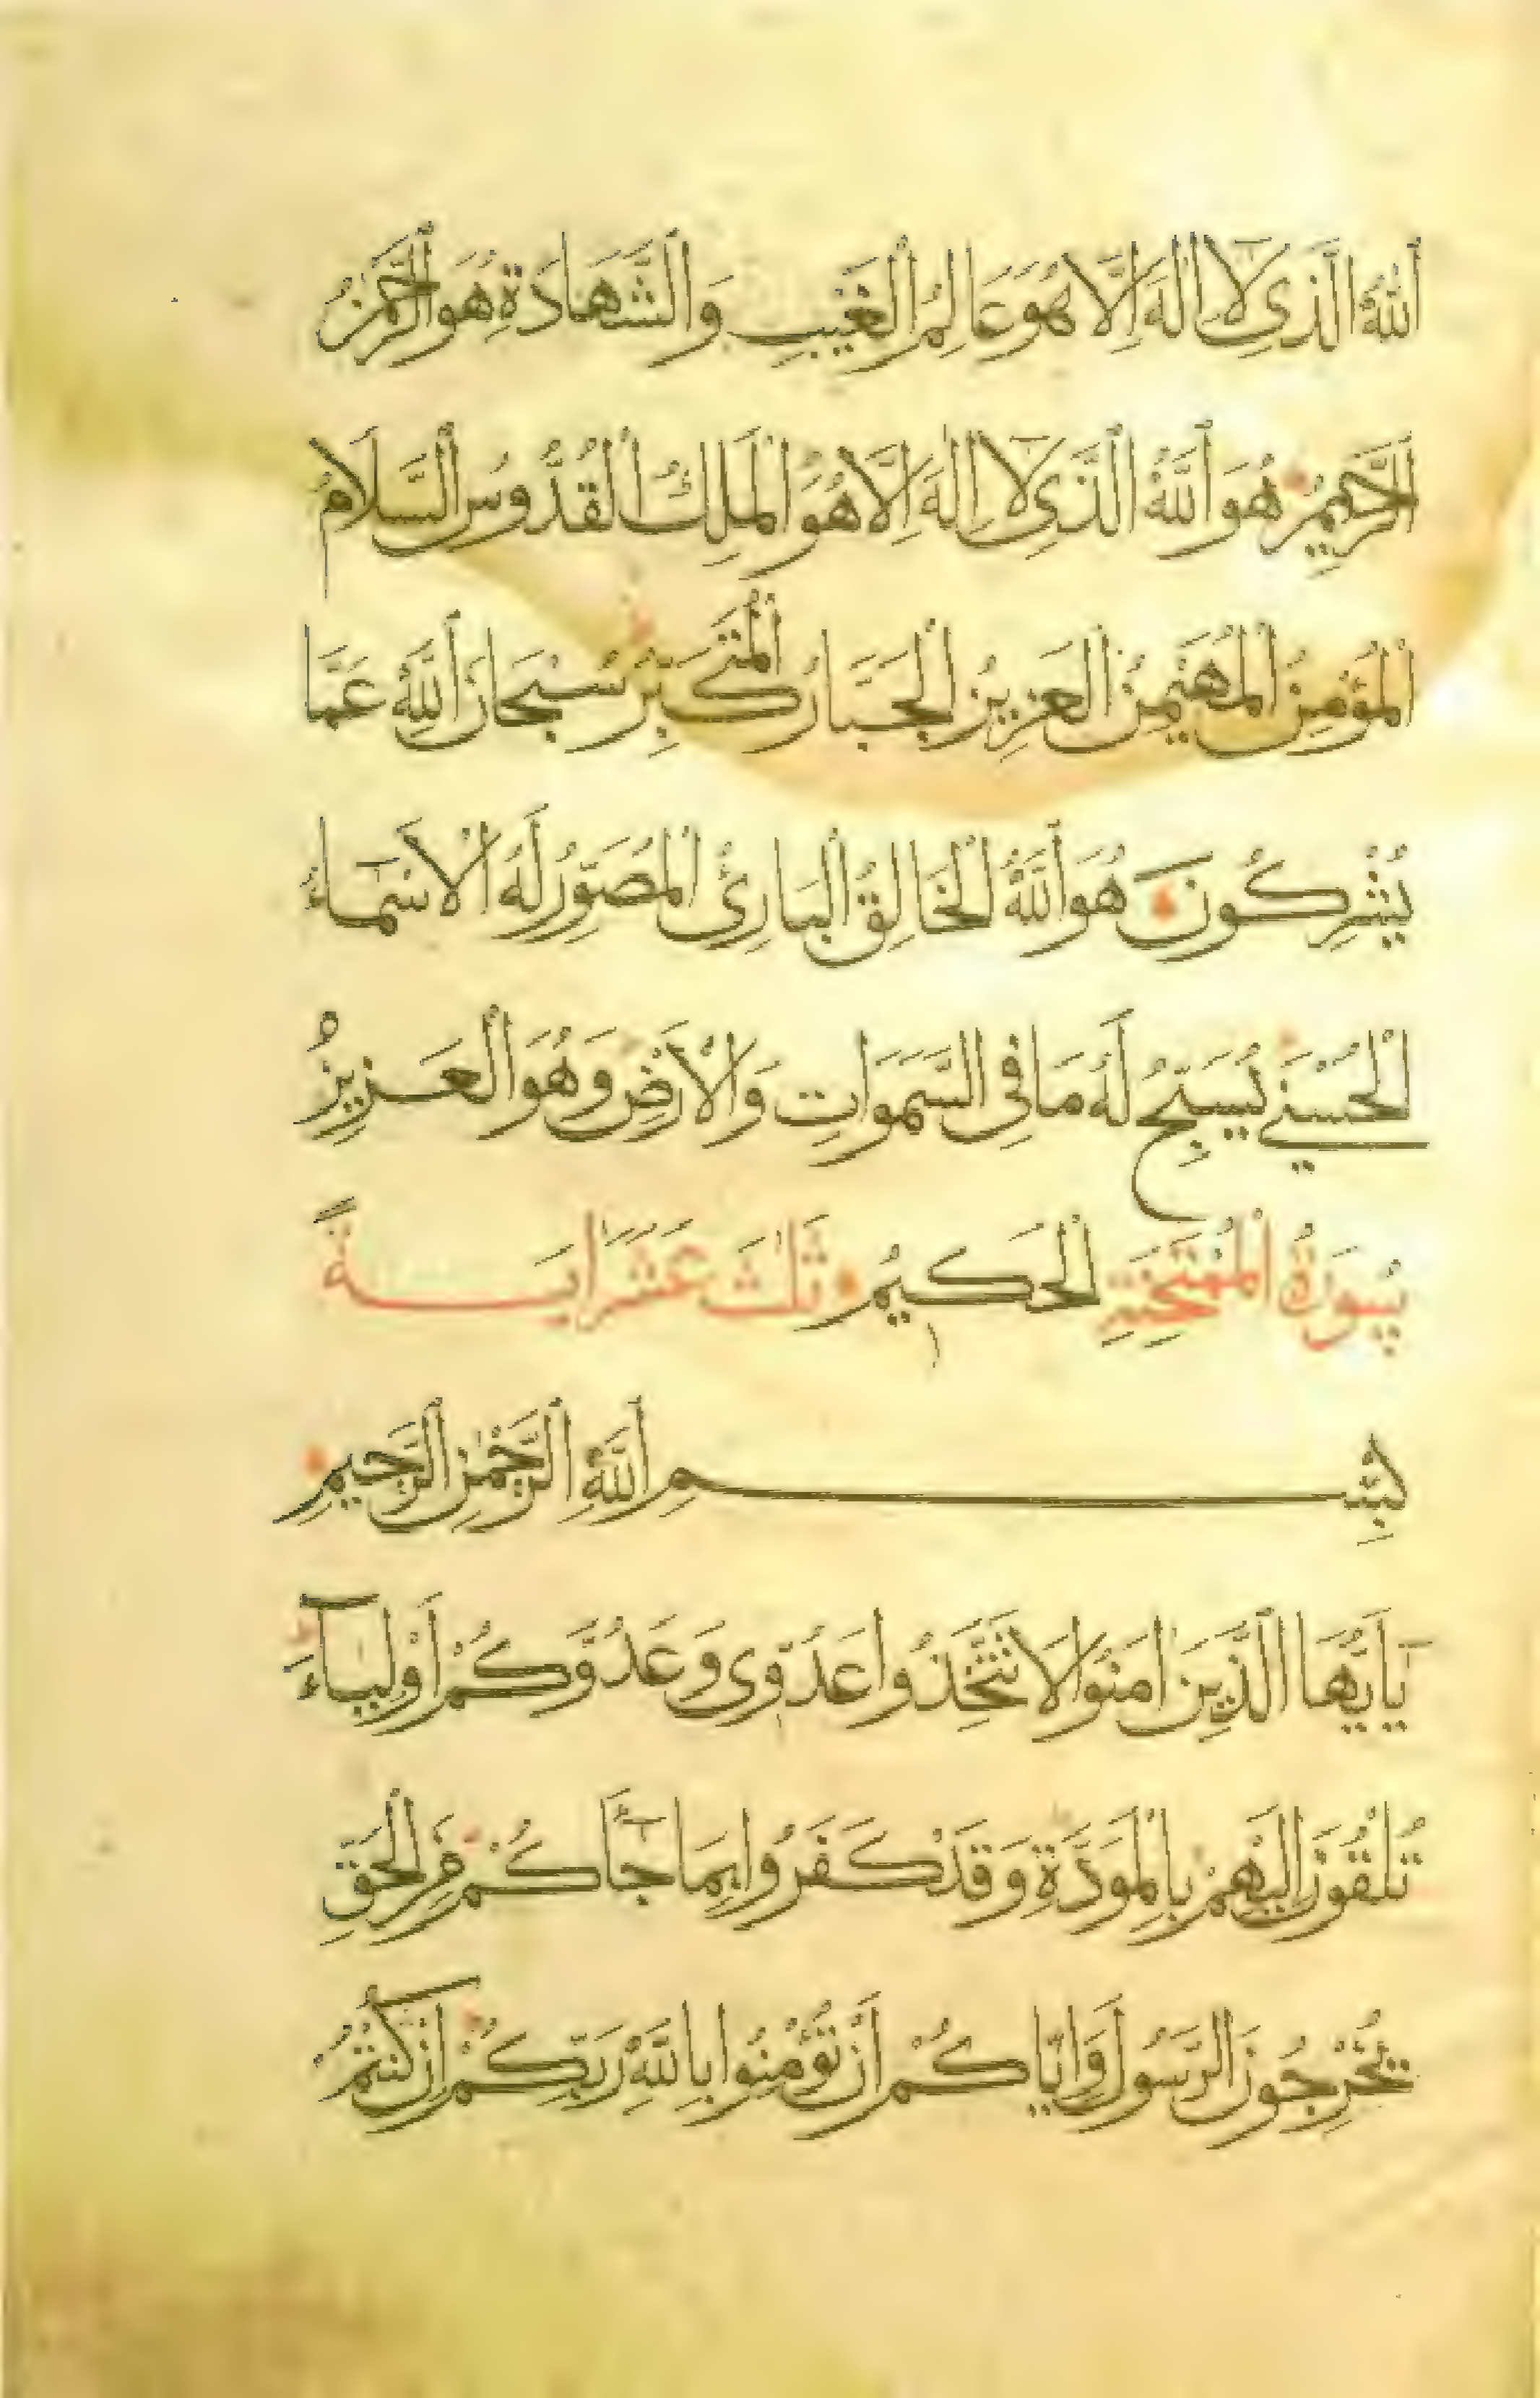 اَللهُ الَّذِى لَا اِلٰهَ اِلَّا هُوَ عَالِمُ الْغَيْبِ وَالشَّهَادَةِ هُوَ الرَّحْمٰنُ
الرَّحِيمُ هُوَ اَللهُ الَّذِى لَا اِلٰهَ اِلَّا هُوَ الْمَلِكُ الْقُدُّوسُ السَّلَامُ
الْمُؤْمِنُ الْمُهَيْمِنُ الْعَزِيزُ الْجَبَّارُ الْمُتَكَبِّرُ سُبْحَانَ اَللهِ عَمَّا
يُشْرِكُونَ هُوَ اَللهُ الْخَالِقُ الْبَارِئُ الْمُصَوِّرُ لَهُ الْاَسْمَاءُ
الْحُسْنٰى يُسَبِّحُ لَهُ مَا فِى السَّمَوَاتِ وَالْاَرْضِ وَهُوَ الْعَزِيزُ
سُورَةُ الْمُمْتَحِنَةِ الْحَكِيمُ ثَلٰثَ عَشَرَ اٰيَةً
بِسْمِ اَللهِ الرَّحْمٰنِ الرَّحِيمِ
يَا اَيُّهَا الَّذِينَ اٰمَنُوا لَا تَتَّخِذُوا عَدُوِّى وَعَدُوَّكُمْ اَوْلِيَآءَ
تُلْقُونَ اِلَيْهِمْ بِالْمَوَدَّةِ وَقَدْ كَفَرُوا بِمَا جَآءَكُمْ مِنَ الْحَقِّ
يُخْرِجُونَ الرَّسُولَ وَاِيَّاكُمْ اَنْ تُؤْمِنُوا بِاللهِ رَبِّكُمْ اِنْ كُنْتُمْ